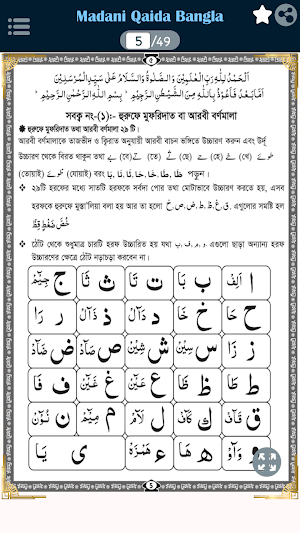 Madani Qaida Bangla
5 /49
اَلْحَمْدُ لِلّٰهِ رَبِّ الْعٰلَمِيْنَ وَ الصَّلٰوةُ وَ السَّلَامُ عَلٰى سَيِّدِ الْمُرْسَلِيْنَ
اَمَّا بَعْدُ فَاَعُوْذُ بِاللّٰهِ مِنَ الشَّيْطٰنِ الرَّجِيْمِ ؕ بِسْمِ اللّٰهِ الرَّحْمٰنِ الرَّحِيْمِ ؕ
সবক্ব নং-(১):- হুরুফে মুফরিদাত বা আরবী বর্ণমালা
হুরুফে মুফরিদাত তথা আরবী বর্ণমালা ২৯ টি।
আরবী বর্ণমালাকে তাজভীদ ও ক্বিরাত অনুযায়ী আরবী বাচন ভঙ্গিতে উচ্চারণ করুন এবং উর্দূ
উচ্চারণ থেকে বিরত থাকুন তথা بے (বে) تے (তে) ثے (ছে) حے (হে) خے (খে) طوئے
(তোয়াই) ظوئے (যোয়াই) বরং بَا, تَا, ثَا, حَا, خَا, طَا, ظَا পড়ুন।
২৯টি হরফের মধ্যে সাতটি হরফকে সর্বদা পোর তথা মোটাভাবে উচ্চারণ করতে হয়, এসব
হরফকে হুরুফে মুস্তা'লিয়া বলা হয় আর তা হলো خ, ص, ض, ط, ظ, غ, ق এগুলোর সমষ্টি হল
خُصَّ ضَغْطٍ قِظْ
ঠোঁট থেকে শুধুমাত্র চারটি হরফ উচ্চারিত হয় যথা ب, ف, م, و এগুলো ছাড়া অন্যান্য হরফ
উচ্চারণের ক্ষেত্রে ঠোঁট নড়াচড়া করবেন না।
ا اَلِفْ ب بَا ت تَا ث ثَا ج جِيْمْ
ح حَا خ خَا د دَالْ ذ ذَالْ ر رَا
ز زَا س سِيْنْ ش شِيْنْ ص صَادْ ض ضَادْ
ط طَا ظ ظَا ع عَيْنْ غ غَيْنْ ف فَا
ق قَافْ ك كَافْ ل لَامْ م مِيْمْ ن نُوْنْ
و وَاوْ ه هَا ء هَمْزَهْ ى يَا
5